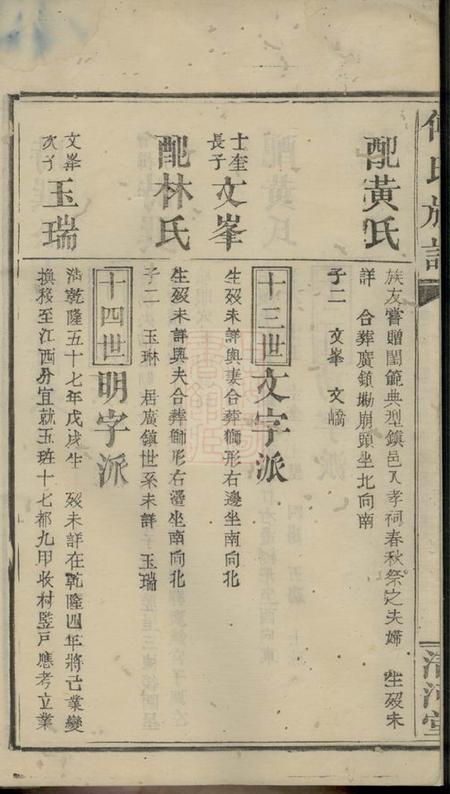 氏族譜
清河堂
配黃氏
族友嘗贈閨範典型鎮邑入孝祠春秋祭之夫婦 生歿未
詳 合葬廣鎮塝崩頭坐北向南
子二 文峯 文嶠
十三世文字派
士奎長子文峯
生歿未詳與妻合葬獅形右邊坐南向北
配林氏
生歿未詳與夫合葬獅形右邊坐南向北
子二 玉琳 居廣鎮世系未詳 玉瑞
十四世明字派
文峯次子玉瑞
乾隆五十七年戊戌生 歿未詳在乾隆四年將己業變
換移至江西分宜就玉班十七都九甲收村監戶應考立業